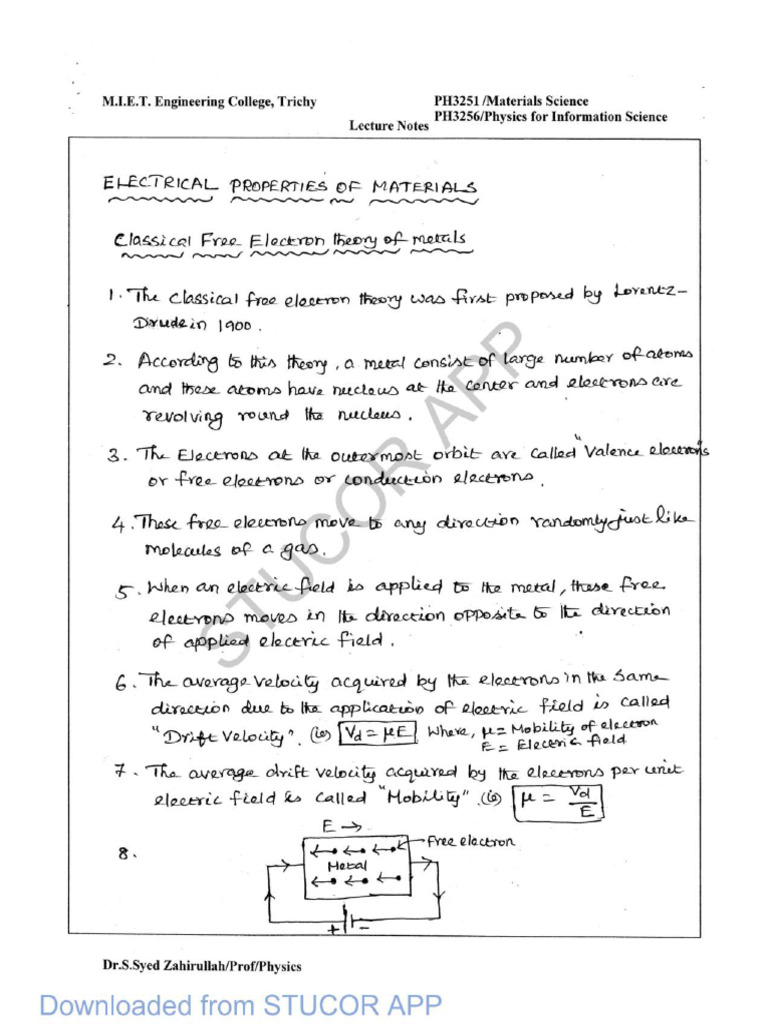 M.I.E.T. Engineering College, Trichy
PH3251 /Materials Science
PH3256/Physics for Information Science
Lecture Notes
ELECTRICAL PROPERTIES OF MATERIALS
Classical Free Electron theory of metals
1. The Classical free electron theory was first proposed by Lorentz-
Drude in 1900.
2. According to this theory, a metal consist of large number of atoms
and these atoms have nucleus at the center and electrons are
revolving round the nucleus.
3. The Electrons at the outermost orbit are called "Valence electrons
or free electrons or conduction electrons.
4. These free electrons move to any direction randomly just like
molecules of a gas.
5. When an electric field is applied to the metal, these free
electrons moves in the direction opposite to the direction
of applied electric field.
6. The average velocity acquired by the electrons in the same
direction due to the application of electric field is called
"Drift Velocity". (ie) Vd = μE Where, μ = Mobility of electron
E = Electric field
7. The average drift velocity acquired by the electrons per unit
electric field is called "Mobility". (ie) μ = Vd/E
E →
8.
Free electron
Metal
+ -
STUCOR APP
Dr.S.Syed Zahirullah/Prof/Physics
Downloaded from STUCOR APP